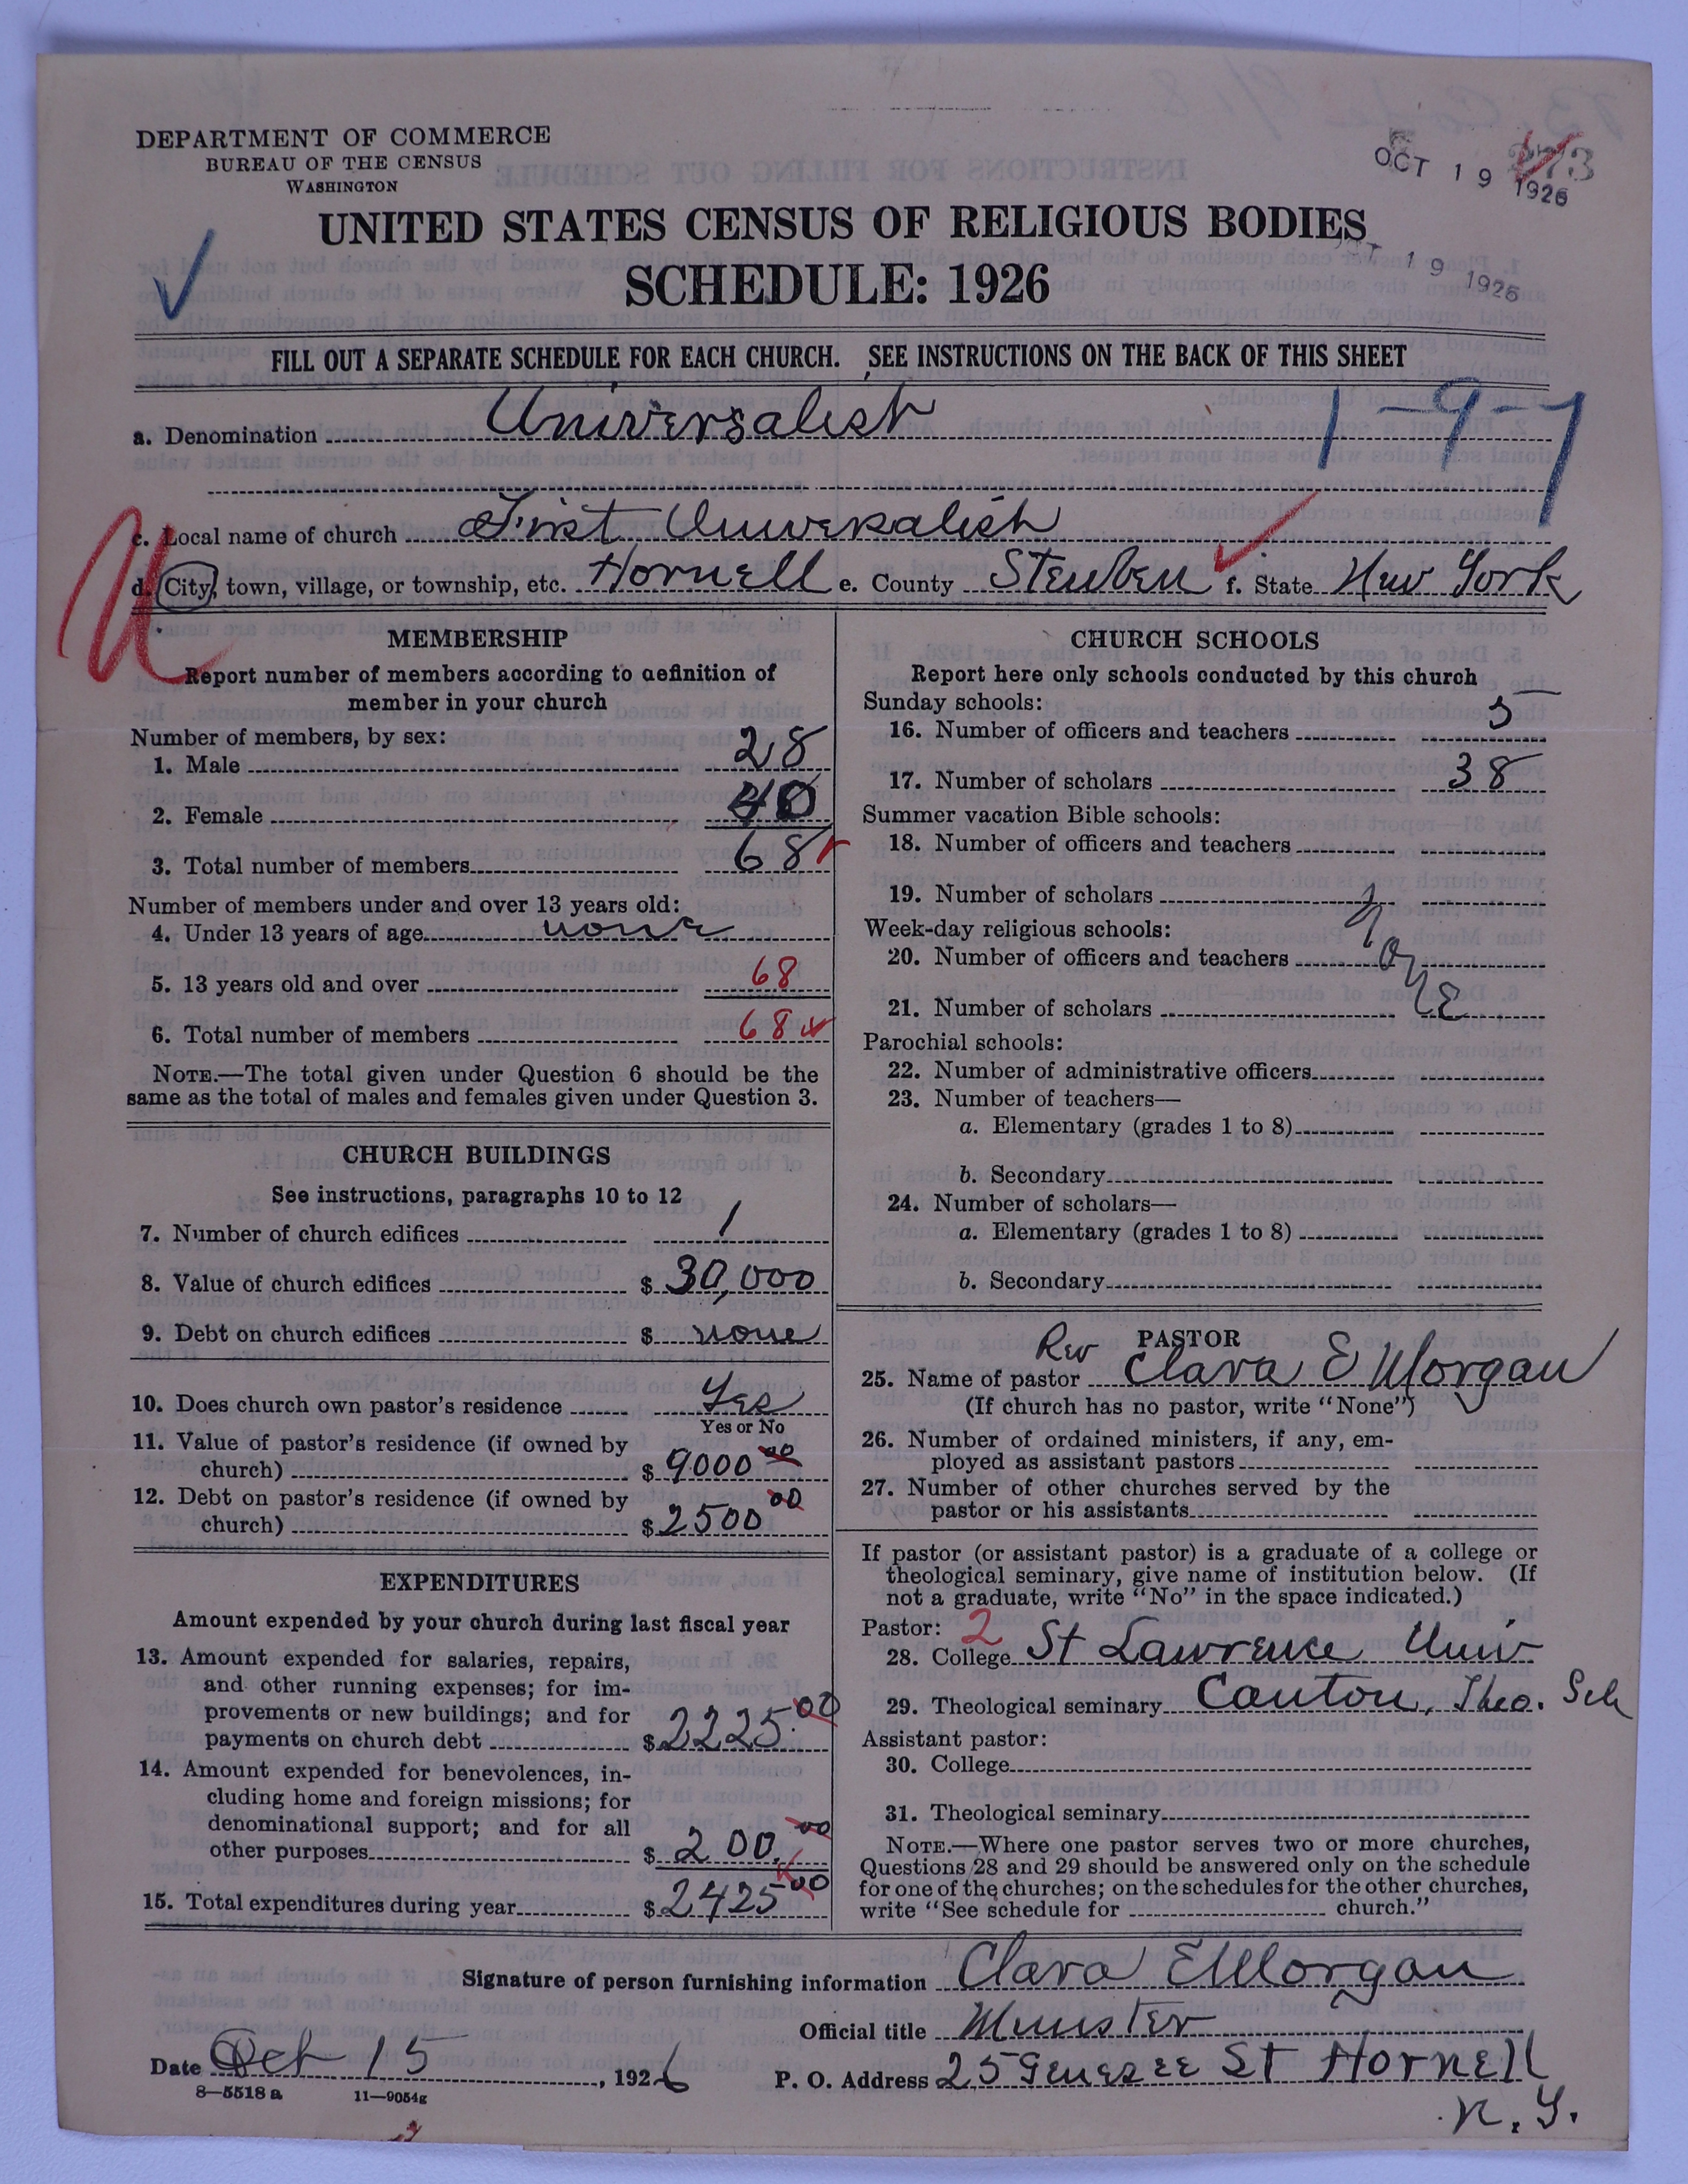 DEPARTMENT OF COMMERCE
BUREAU OF THE CENSUS
WASHINGTON
OCT 19 1926
OCT 19 1926
UNITED STATES CENSUS OF RELIGIOUS BODIES
SCHEDULE: 1926
FILL OUT A SEPARATE SCHEDULE FOR EACH CHURCH. SEE INSTRUCTIONS ON THE BACK OF THIS SHEET
a. Denomination Universalist
1-9-7
c. Local name of church First Universalist
d. City, town, village, or township, etc. Hornell e. County Steuben f. State New York
MEMBERSHIP
Report number of members according to definition of
member in your church
Number of members, by sex:
1. Male 28
2. Female 40
3. Total number of members 68
Number of members under and over 13 years old:
4. Under 13 years of age none
5. 13 years old and over 68
6. Total number of members 68
NOTE.—The total given under Question 6 should be the
same as the total of males and females given under Question 3.
CHURCH BUILDINGS
See instructions, paragraphs 10 to 12
7. Number of church edifices 1
8. Value of church edifices $ 30,000
9. Debt on church edifices $ none
10. Does church own pastor's residence Yes
Yes or No
11. Value of pastor's residence (if owned by
church) $ 9000 00
12. Debt on pastor's residence (if owned by
church) $ 2500 00
EXPENDITURES
Amount expended by your church during last fiscal year
13. Amount expended for salaries, repairs,
and other running expenses; for im-
provements or new buildings; and for
payments on church debt $ 2225.00
14. Amount expended for benevolences, in-
cluding home and foreign missions; for
denominational support; and for all
other purposes $ 200.00
15. Total expenditures during year $ 2425 00
CHURCH SCHOOLS
Report here only schools conducted by this church
Sunday schools:
16. Number of officers and teachers 5
17. Number of scholars 38
Summer vacation Bible schools:
18. Number of officers and teachers
19. Number of scholars
Week-day religious schools:
20. Number of officers and teachers
None
21. Number of scholars
Parochial schools:
22. Number of administrative officers
23. Number of teachers—
a. Elementary (grades 1 to 8)
b. Secondary
24. Number of scholars—
a. Elementary (grades 1 to 8)
b. Secondary
PASTOR
25. Name of pastor Rev Clara E Morgan
(If church has no pastor, write "None")
26. Number of ordained ministers, if any, em-
ployed as assistant pastors
27. Number of other churches served by the
pastor or his assistants
If pastor (or assistant pastor) is a graduate of a college or
theological seminary, give name of institution below. (If
not a graduate, write "No" in the space indicated.)
Pastor: 2
28. College St Lawrence Univ
29. Theological seminary Canton, Theo. Sch
Assistant pastor:
30. College
31. Theological seminary
NOTE.—Where one pastor serves two or more churches,
Questions 28 and 29 should be answered only on the schedule
for one of the churches; on the schedules for the other churches,
write "See schedule for church."
Signature of person furnishing information Clara E Morgan
Official title Minister
Date Oct 15, 1926
P. O. Address 25 Genesee St Hornell
N.Y.
8-5518 a 11-9054g